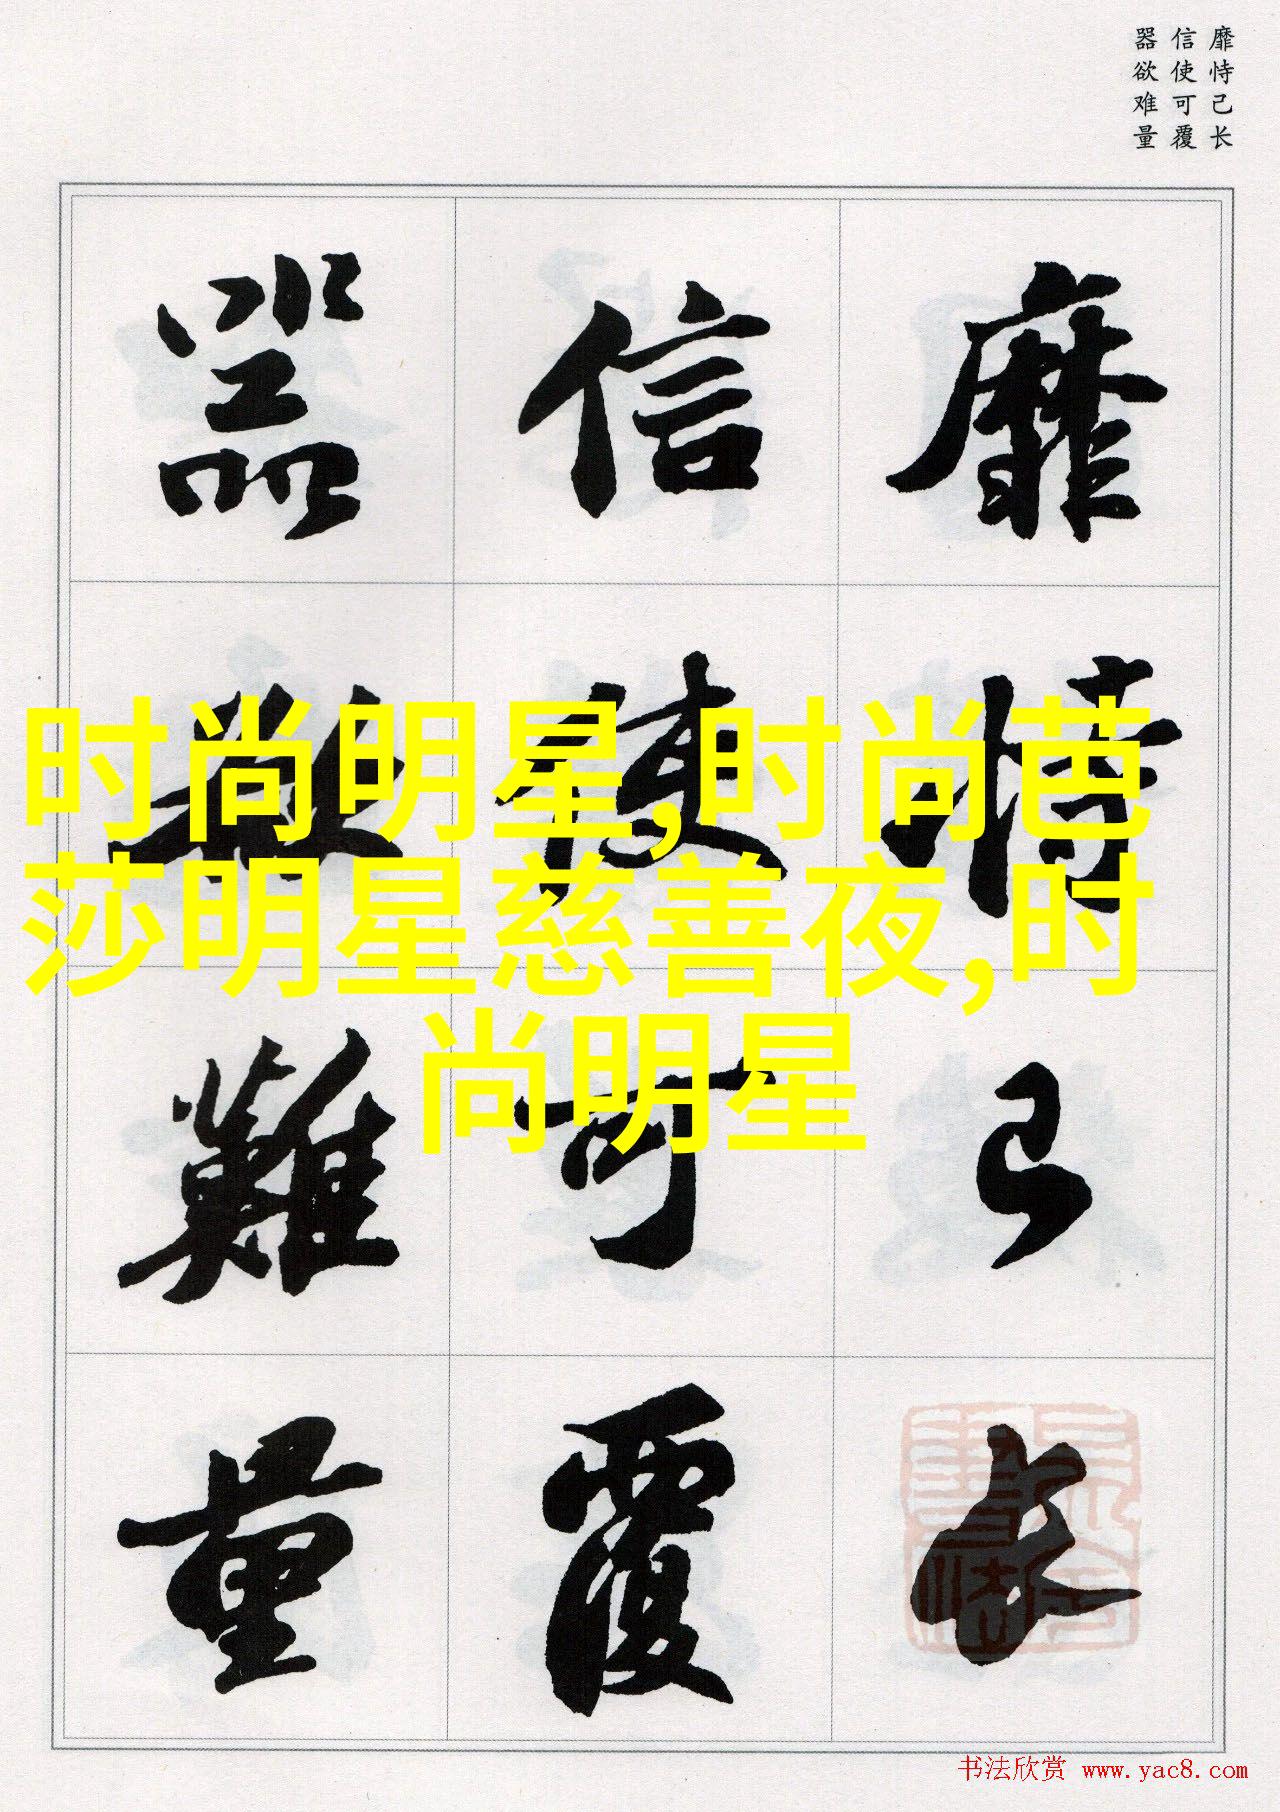 靡恃己长
信使可覆
器欲难量
靡恃己長
信使可覆
器欲難量
时尚明星,时尚芭
莎明星慈善夜,时
尚明星
书法欣赏 www.yac8.com